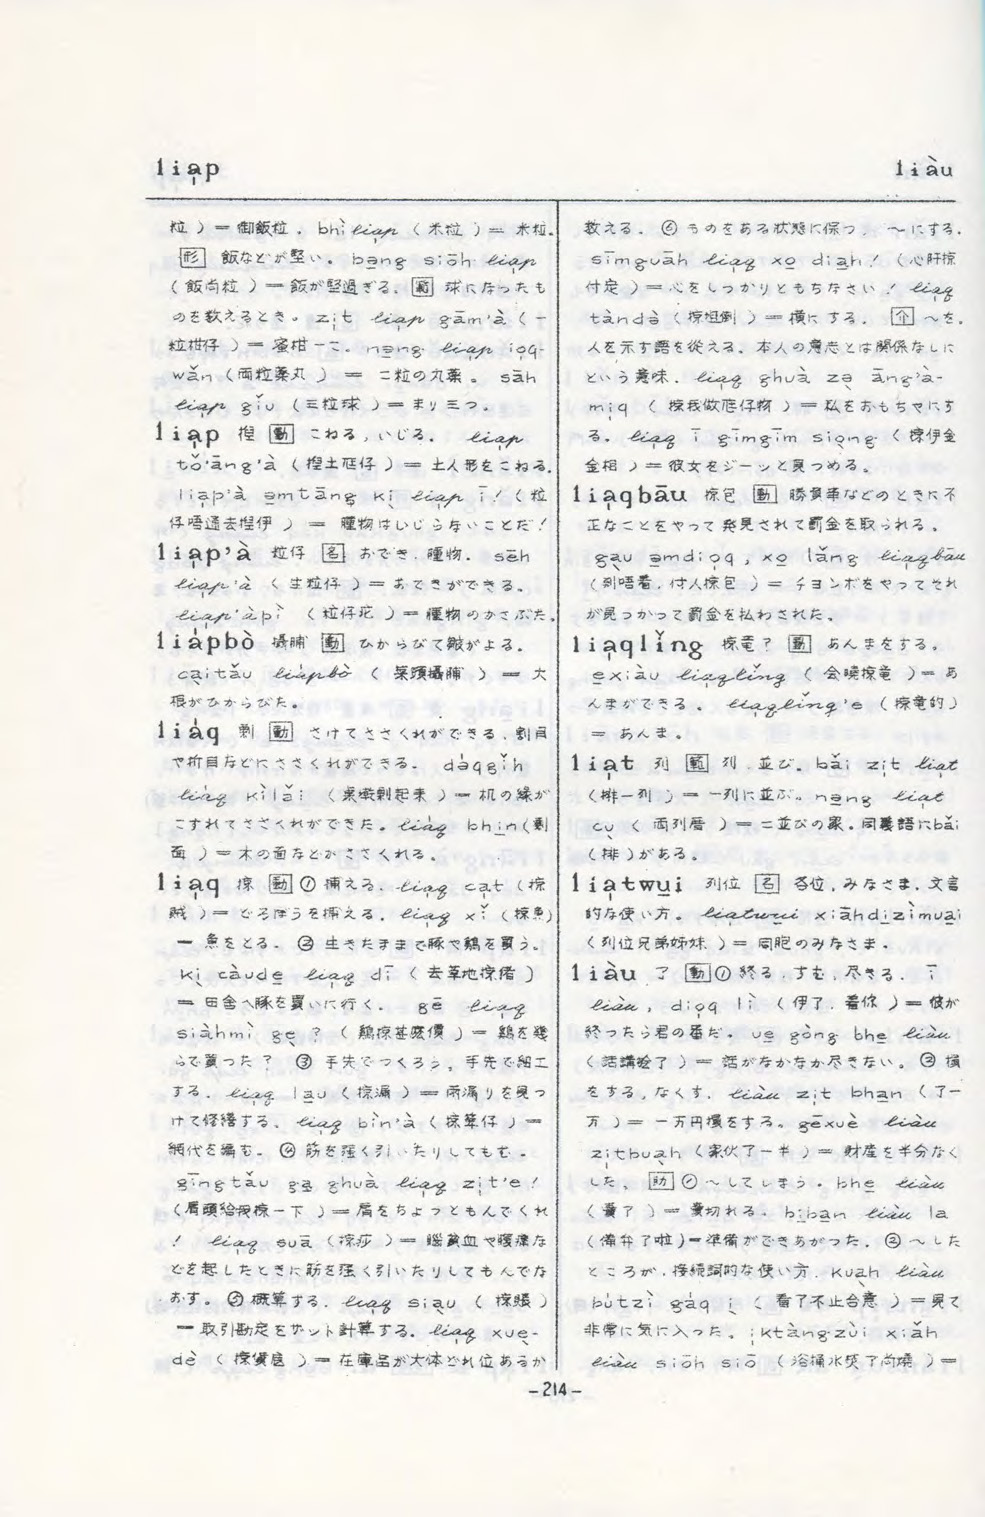 liap̣ liàu
粒)＝御飯粒. bhì liap̣ (米粒)＝米粒.
形 飯などが堅い。bәng siōh liap̣
(飯尚粒)＝飯が堅過ぎる. 範 球になったも
のを数えるとき。zi̍t liap̣ gām'à (一
粒柑仔)＝蜜柑一こ. nә̱ng liap̣ iә̱q-
wǎn (両粒薬丸)＝二粒の丸薬。sāh
liap̣ giǔ (三粒球)＝まり三つ。
liap̣ 捏 動 こねる, いじる. liap̣
tǒ'āng'à (捏土尫仔)＝土人形をこねる.
liap̣'à ә̱mtāng kì̱ liap̣ ī! (粒
仔唔通去捏伊)＝腫物はいじらないことだ!
liap̣'à 粒仔 名 おでき, 腫物. sēh
liap̣'à (生粒仔)＝おできができる.
liap̣'àpì (粒仔疕)＝腫物のかさぶた.
liȧpbò 攝脯 動 ひからびて皺がよる.
cạitǎu liȧpbò (菜頭攝脯)＝大
根がひからびた.
liȧq 剿 動 さけてささくれができる, 割目
や折目などにささくれができる. dȧqgǐh
liȧq kìlǎi (桌墘剿起来)＝机の縁が
こすれてささくれができた。liȧq bhịn(剿
面)＝木の面などがささくれる.
liạq 掠 動 ① 捕える. liạq cạt (掠
賊)＝どろぼうを捕える. liạq xǐ (掠魚)
＝魚をとる. ② 生きたままで豚や鶏を買う。
kì̱ càude liạq dī (去草地掠猪)
＝田舎へ豚を買いに行く. gē liạq
siàhmì gẹ? (鶏掠甚麼價)＝鶏を幾
らで買った? ③ 手先でつくろう, 手先で細工
する. liạq lạu (掠漏)＝雨漏りを見つ
けて修繕する. liạq bīn'à (掠箅仔)＝
網代を編む. ④ 筋を強く引いたりしてもむ.
gīngtǎu gạ ghuà liạq zịt'e!
(肩頭給我掠一下)＝肩をちょっともんでくれ
! liạq suā (掠痧)＝脳貧血や腹痛な
どを起したときに筋を強く引いたりしてもんでな
おす. ⑤ 概算する. liạq siạu (掠賬)
＝取引勘定をザット計算する. liạq xuẹ-
dè (掠貨底)＝在庫品が大体どれ位あるか
数える. ⑥ ものをある状態に保つ, ～にする.
sīmguāh liạq xọ diạh! (心肝掠
付定)＝心をしっかりともちなさい! liạq
tàndà (掠坦倒)＝横にする. 介 ～を.
人を示す語を従える. 本人の意志とは関係なしに
という意味. liạq ghuà zẹ āng'à-
mịq (掠我做尫仔物)＝私をおもちゃにす
る. liạq ī gīmgīm siọng (掠伊金
金相)＝彼女をジーッと見つめる.
liạqbāu 掠包 動 勝負事などのときに不
正なことをやって発見されて罰金を取られる.
gạu ә̱mdiọq, xọ lǎng liạqbāu
(到唔着, 付人掠包)＝チョンボをやってそれ
が見つかって罰金を払わされた.
liạqlǐng 掠竜? 動 あんまをする。
ẹxiàu liạqlǐng (会曉掠竜)＝あ
んまができる. liạqlǐng'e (掠竜的)
＝あんま.
liạt 列 範 列, 並び. bǎi zịt liạt
(排一列)＝一列に並ぶ. nә̱ng liạt
cụ (両列厝)＝二並びの家. 同義語にbǎi
(排)がある.
liạtwụi 列位 名 各位, みなさま. 文言
的な使い方. liạtwụi xiāhdịzìmuại
(列位兄弟姉妹)＝同胞のみなさま.
liàu 了 動 ① 終る, すむ, 尽きる. ī
liàu, diọq lì (伊了, 着你)＝彼が
終ったら君の番だ. uẹ gòng bhẹ liàu
(話講𣍐了)＝話がなかなか尽きない. ② 損
をする, なくす. liàu zịt bhạn (了一
万)＝一万円損をする. gēxuè liàu
zịtbuạh (家伙了一半)＝財産を半分なく
した. 助 ① ～してしまう. bhẹ liàu
(賣了)＝賣切れる. bịbạn liàu la
(備弁了啦)＝準備ができあがった. ② ～した
ところが, 接続詞的な使い方. kuạh liàu
bu̇tzì gȧq ị (看了不止合意)＝見て
非常に気に入った. ịktàngzùi xiǎh
liàu siōh siō (浴桶水焚了尚燒)＝
-214-